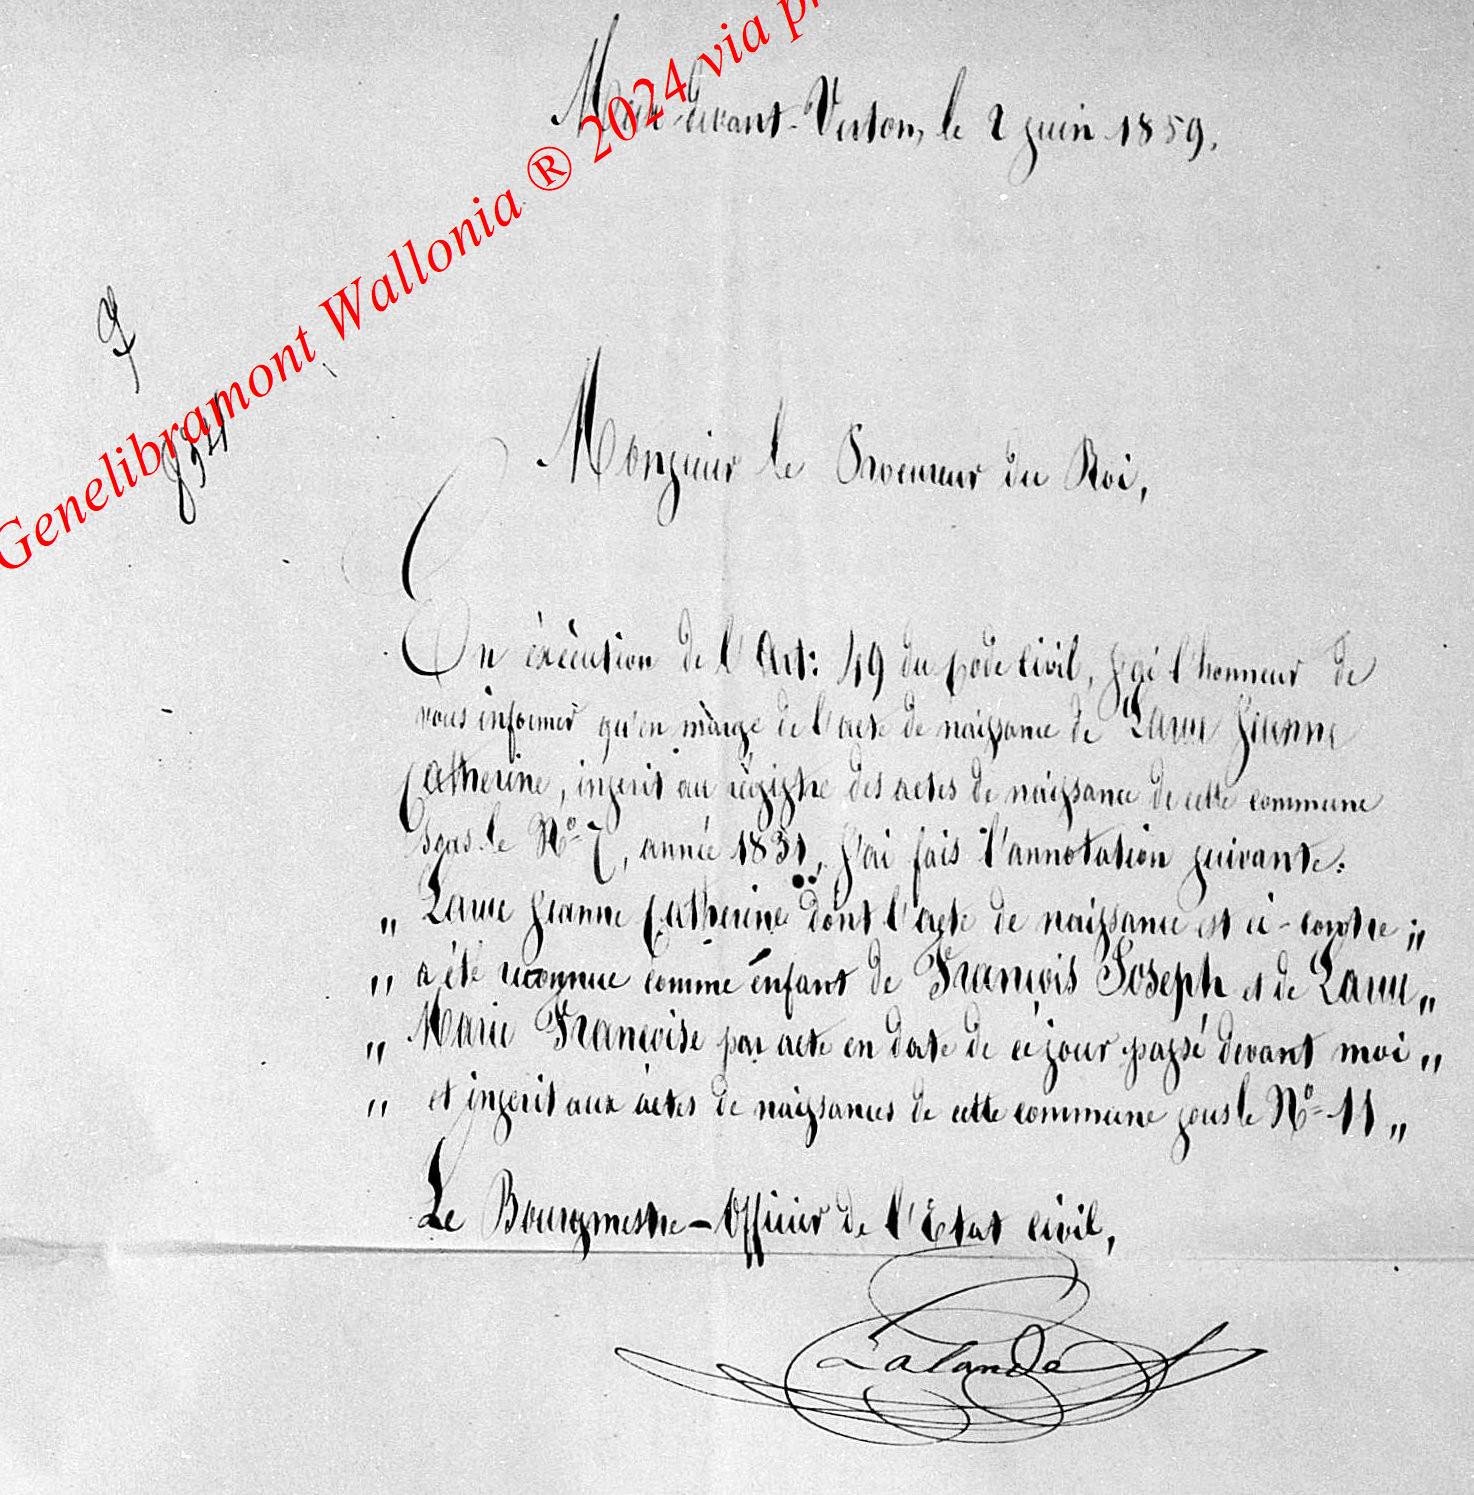 Meix-devant-Virton, le 2 juin 1859.
Genelibramont Wallonia ® 2024 via
Monsieur le Procureur du Roi,
En éxécution de l'Art: 49 du Code Civil, j'ai l'honneur de
vous informer qu'en marge de l'acte de naissance de Laure Jeanne
Catherine, inscrit au régistre des actes de naissance de cette commune
sous le Nº 7, année 1831, j'ai fais l'annotation suivante:
„ Laure Jeanne Catherine dont l'acte de naissance est ci-contre „
„ a été reconnue comme enfant de François Joseph et de Laure „
„ Marie Françoise par acte en date de ce jour passé devant moi „
„ et inscrit aux actes de naissances de cette commune sous le Nº 11 „
Le Bourgmestre - Officier de l'Etat civil,
Lalande